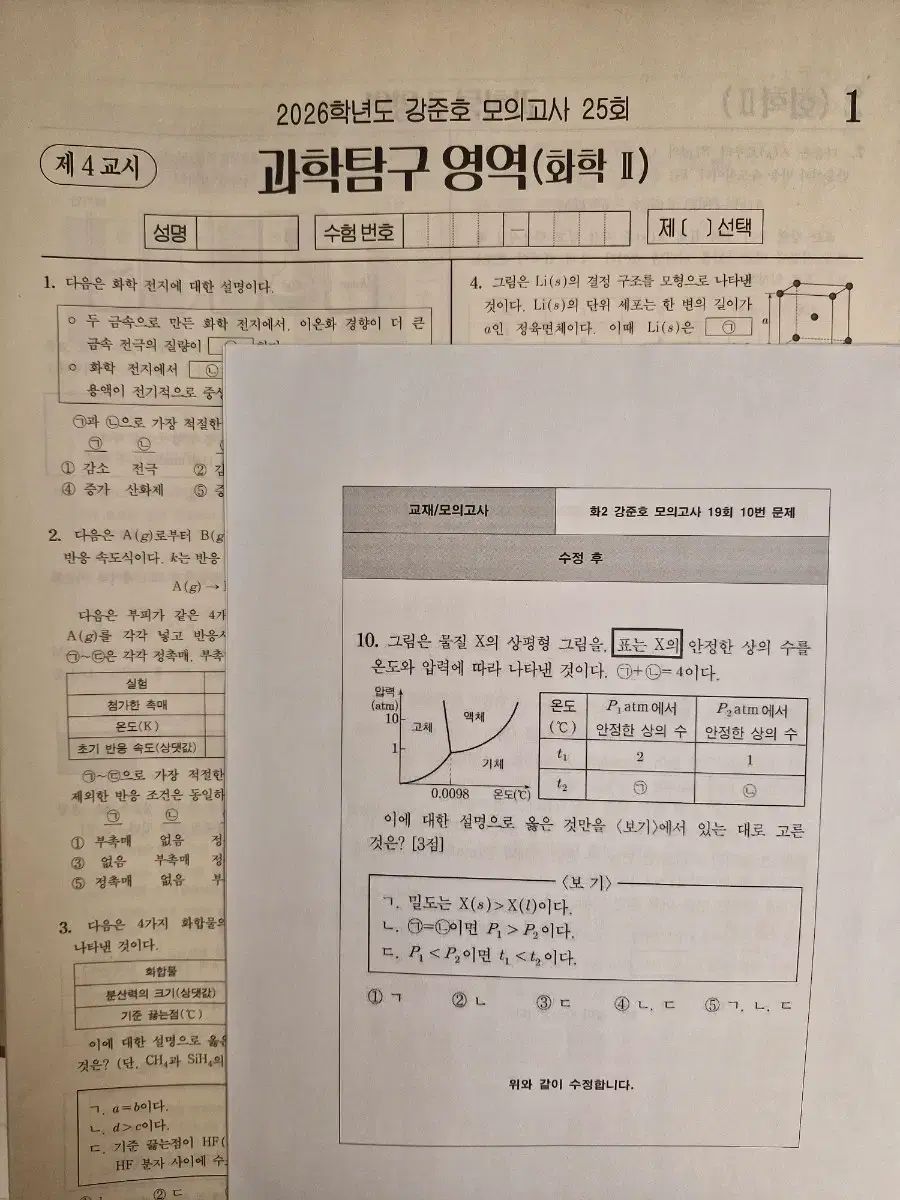 2026학년도 강준호 모의고사 25회
1
제 4 교시
과학탐구 영역(화학 Ⅱ)
성명
수험 번호
제 ( ) 선택
1. 다음은 화학 전지에 대한 설명이다.
○ 두 금속으로 만든 화학 전지에서, 이온화 경향이 더 큰
금속 전극의 질량이
○ 화학 전지에서 ㉡
용액이 전기적으로 중성
㉠과 ㉡으로 가장 적절한
㉠ ㉡
① 감소 전극 ②
④ 증가 산화제 ⑤
2. 다음은 A(g)로부터 B(g
반응 속도식이다. k는 반응
A(g) →
다음은 부피가 같은 4개
A(g)를 각각 넣고 반응
㉠~㉢은 각각 정촉매, 부촉
실험
첨가한 촉매
온도(K)
초기 반응 속도(상댓값)
㉠~㉢으로 가장 적절한
제외한 반응 조건은 동일하
㉠ ㉡
① 부촉매 없음 정
③ 없음 부촉매 정
⑤ 정촉매 없음 부
3. 다음은 4가지 화합물의
나타낸 것이다.
화합물
분산력의 크기(상댓값)
기준 끓는점(℃)
이에 대한 설명으로 옳은
것은? (단, CH₄과 SiH₄의
ㄱ. a=b이다.
ㄴ. d>c이다.
ㄷ. 기준 끓는점이 HF(
HF 분자 사이에 수
② ㄷ
4. 그림은 Li(s)의 결정 구조를 모형으로 나타낸
것이다. Li(s)의 단위 세포는 한 변의 길이가
a인 정육면체이다. 이때 Li(s)은 ㉠
a
교재/모의고사
화2 강준호 모의고사 19회 10번 문제
수정 후
10. 그림은 물질 X의 상평형 그림을, 표는 X의 안정한 상의 수를
온도와 압력에 따라 나타낸 것이다. ㉠+㉡=4이다.
압력
(atm)
10
1
고체
액체
기체
0.0098
온도(℃)
온도 (℃) P₁ atm에서 안정한 상의 수 P₂ atm에서 안정한 상의 수
t₁ 2 1
t₂ ㉠ ㉡
이에 대한 설명으로 옳은 것만을 〈보기〉에서 있는 대로 고른
것은? [3점]
〈보 기〉
ㄱ. 밀도는 X(s)>X(l)이다.
ㄴ. ㉠=㉡이면 P₁>P₂이다.
ㄷ. P₁<P₂이면 t₁<t₂이다.
① ㄱ ② ㄴ ③ ㄷ ④ ㄴ, ㄷ ⑤ ㄱ, ㄴ, ㄷ
위와 같이 수정합니다.